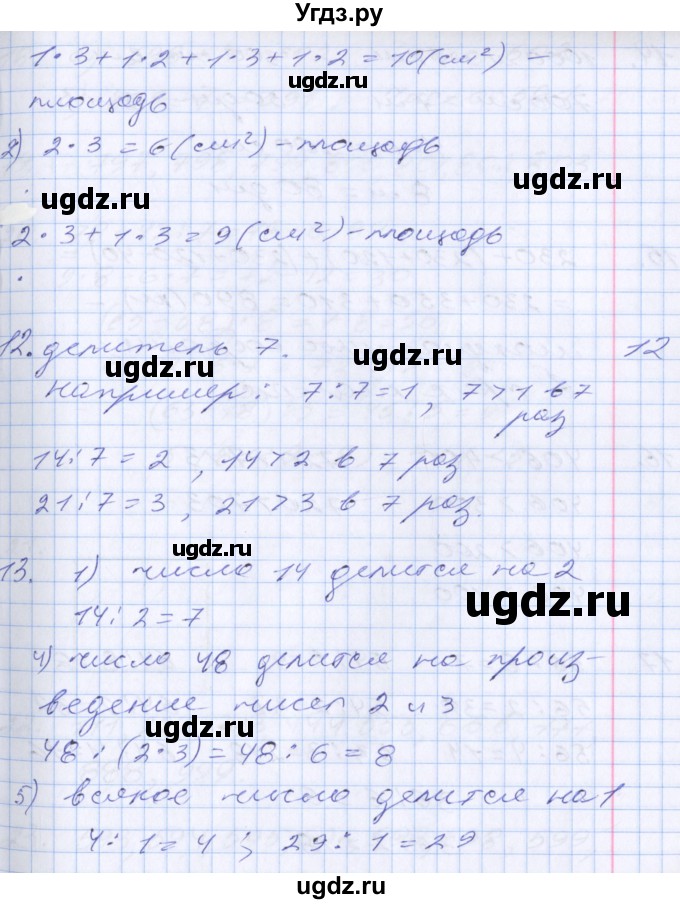 Угдз.ру
1·3+1·2+1·3+1·2=10(см²) –
ugdz.ru
площадь
2) 2·3=6(см²)–площадь
ugdz.ru ugdz.ru
2·3+1·3=9(см²)–площадь
ugdz.ru
12. делитель 7. 12
ugdz.ru ugdz.ru
Например: 7:7=1, 7>1 в 7
раз
14:7=2, 14>2 в 7 раз
21:7=3, 21>3 в 7 раз.
ugdz.ru
13. 1) число 14 делится на 2
ugdz.ru
14:2=7
4) число 48 делится на произ–
ведение чисел 2 и 3
ugdz.ru
48:(2·3)=48:6=8
5) всякое число делится на 1
ugdz.ru
4:1=4; 29:1=29
ugdz.ru